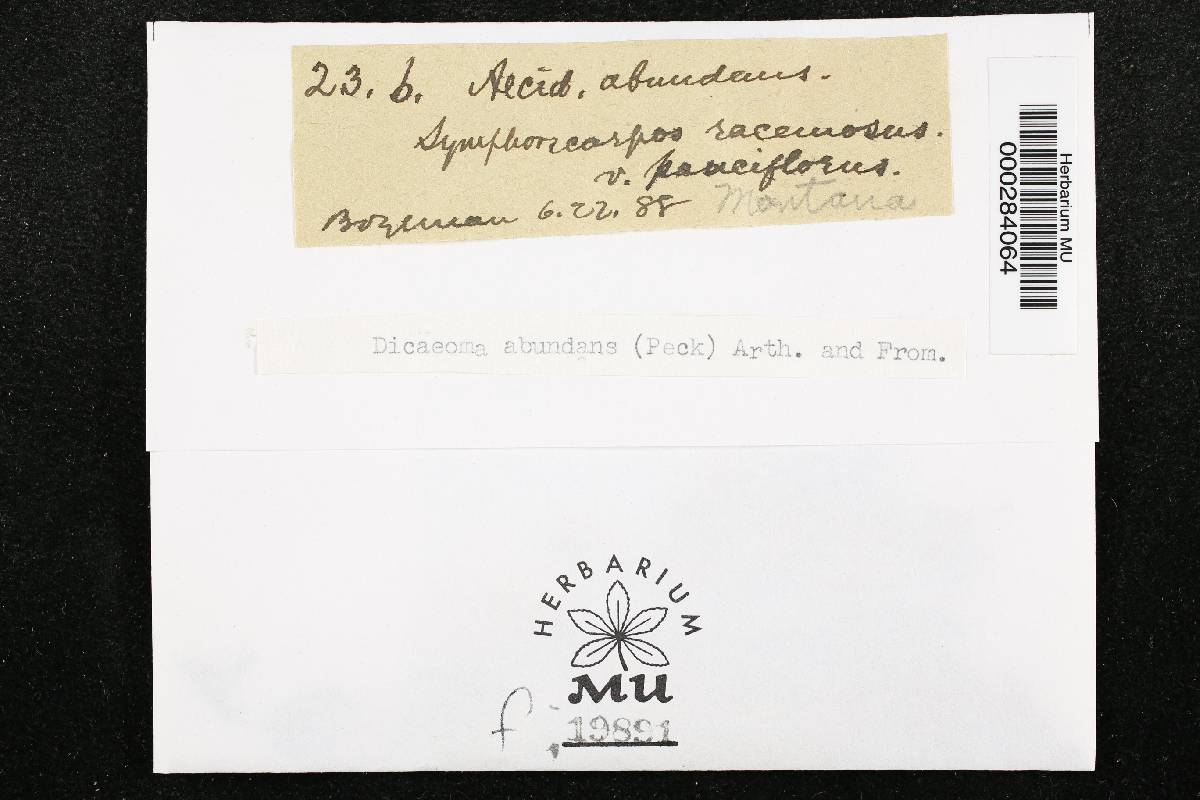 23. b. Aecid. abundans.
Symphoricarpos racemosus.
v. pauciflorus.
Bozeman 6.22.88 Montana
Herbarium MU
000284064
Dicaeoma abundans (Peck) Arth. and From.
HERBARIUM
MU
f. 19891